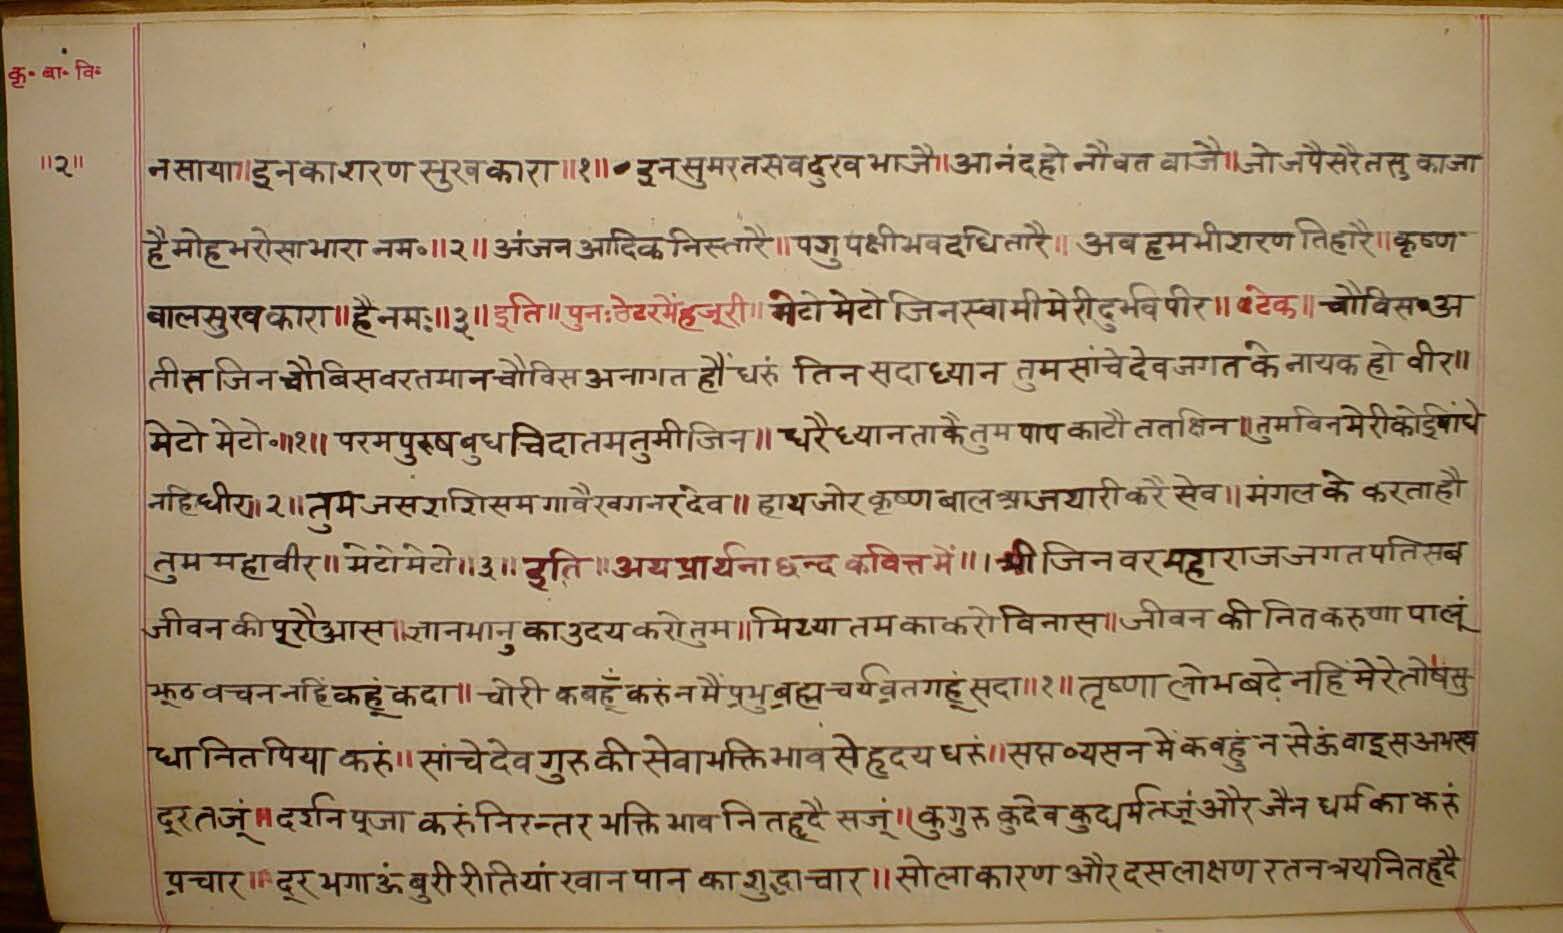 कृ॰ बा॰ वि॰
॥२॥
नसाया॥इनका शरण सुखकारा॥१॥ इनसुमरतसवदुखभाजै॥आनंदहो नौवत वाजै॥जो जपैसरैतसु काजा
है मोह भरोसा भारा नम॰॥२॥ अंजन आदिक निस्तारै॥पशु पक्षीभवदधि तारै॥ अब हम भी शरण तिहारै॥कृष्ण
बालसुखकारा॥है नमः॥३॥इति॥पुनःठेटरमेंहजूरी॥मेटो मेटो जिनस्वामी मेरी दुर्भवपीर॥टेक॥चौविस अ
तीत जिन चौबिसवरतमानचौविस अनागत हौं धरुं तिन सदाध्यान तुम सांचे देव जगत के नायक हो वीर॥
मेटो मेटो॰॥१॥ परमपुरुष बुध चिदातम तुमी जिन॥ धरै ध्यान ताकै तुम पाप काटौ ततक्षिन॥तुमबिन मेरी कोई बांधे
नहिधीर॥२॥तुम जस शशिसम गावै खगनरदेव॥ हाथ जोर कृष्णबाल आजथारी करै सेव॥मंगल के करता हौ
तुम महावीर॥मेटो मेटो॥३॥ इति॥अथ प्रार्थना छन्द कवित्त में॥।श्री जिनवर महाराज जगतपति सब
जीवन की पूरौ आस॥ज्ञानभानु का उदय करो तुम॥मिथ्यातम का करो विनास॥जीवन की नित करुणा पालूं
झूठ वचन नहिं कहूं कदा॥चोरी कबहूँ करुं न मैं प्रभु ब्रह्मचर्य व्रत गहूं सदा॥१॥तृष्णा लोभ बढ़े नहिं मेरे तोषसु
धा नित पिया करुं॥सांचे देव गुरु की सेवा भक्ति भाव से हृदय धरुं॥सप्त व्यसन में कबहुं न सेऊं वाइस अभख
दूर तजूं॥दर्शन पूजा करुं निरन्तर भक्ति भाव नित हृदै सजूं॥कुगुरु कुदेव कुधर्म तजूं और जैन धर्म का करुं
प्रचार॥दूर भगाऊं बुरी रीतियां खान पान का शुद्धाचार॥सोलाकारण और दसलाक्षण रतनत्रय नित हृदै